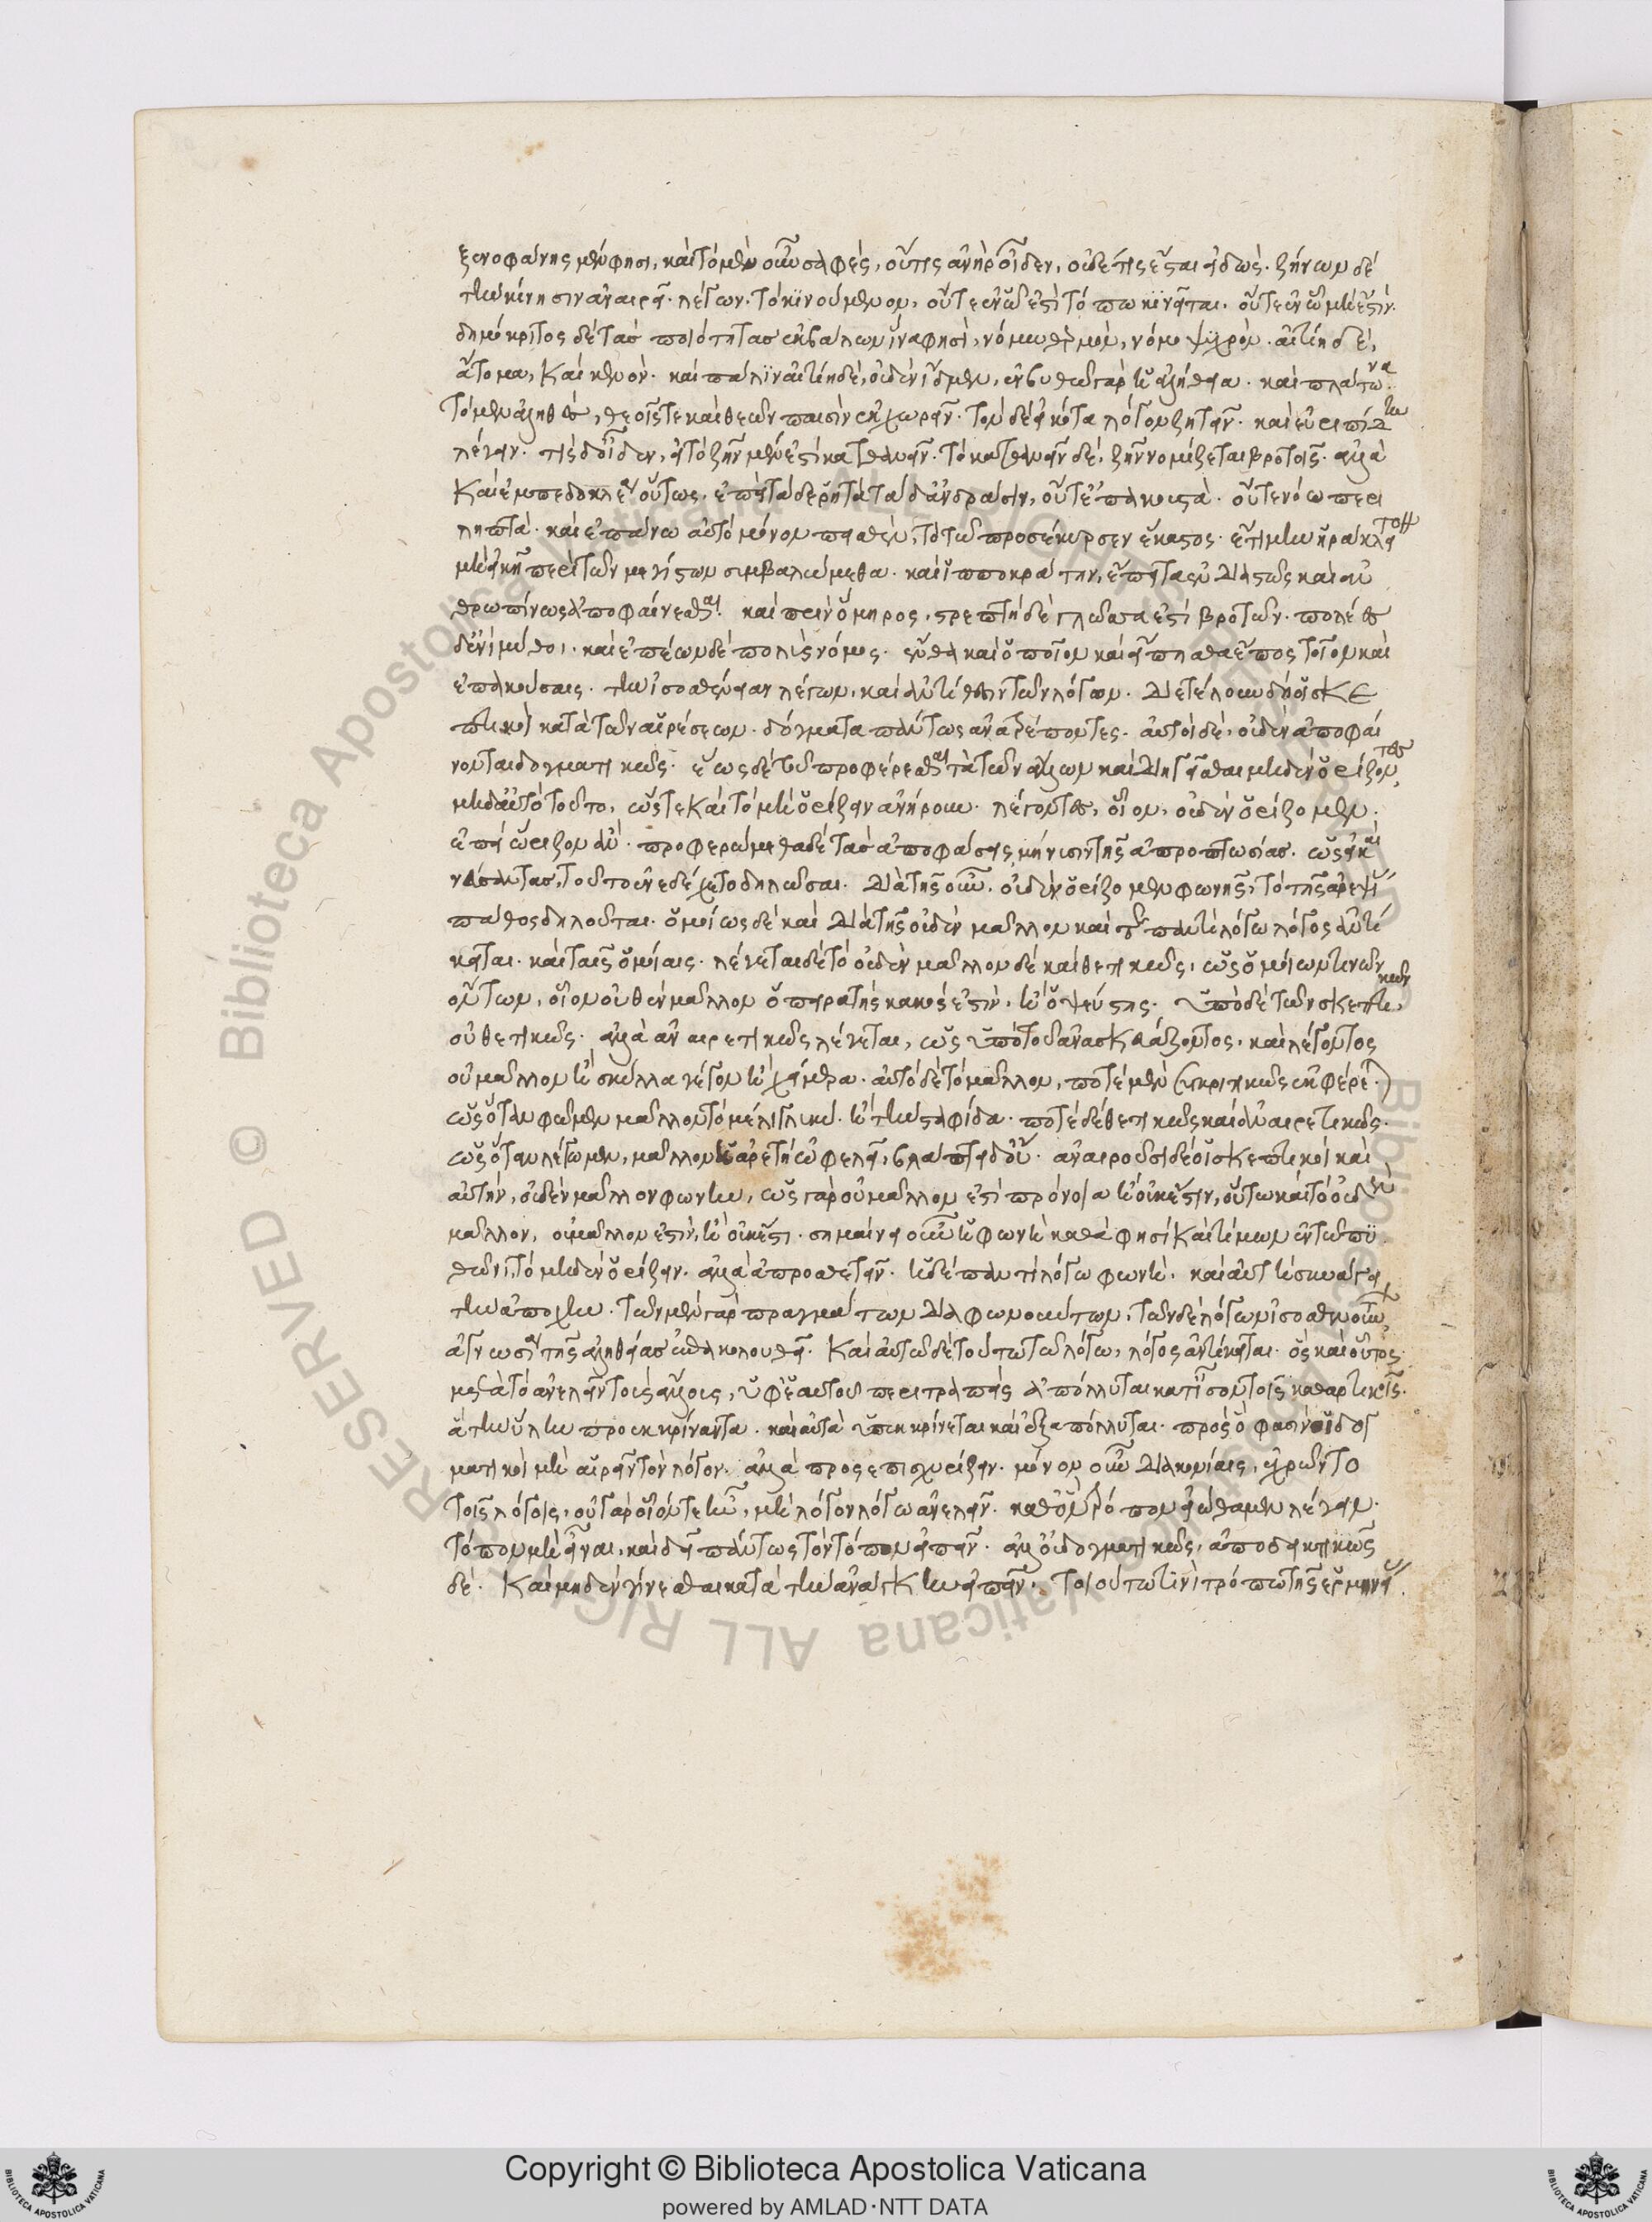 ξενοφάνης μὲν φησι, καὶ τὸ μὲν οὖν σαφὲς, οὔτις ἀνὴρ οἶδεν, οὐδέ τις ἔσται εἰδώς. ζήνων δὲ
τὴν κίνησιν ἀναιρεῖ. λέγων. τὸ κινούμενον, οὔτε ἐν ᾧ ἐστὶ τόπω κινεῖται. οὔτε ἐν ᾧ μὴ ἔστιν.
δημόκριτος δὲ τὰς ποιότητας ἐκβαλὼν ἵνα φησὶ, νόμω θερμὸν, νόμω ψυχρόν. αἰτίη δὲ,
ἄτομα, καὶ κενόν. καὶ πάλιν αἰτίη δὲ, οὐδὲν ἴδμεν, ἐν βυθῶ γὰρ ἡ ἀλήθεια. καὶ πλάτωνα.
τὸ μὲν ἀληθὲς, θεοῖς τε καὶ θεῶν παισὶν ἐκχωρεῖν. τὸν δὲ εἰκότα λόγον ζητεῖν. καὶ εὐριπίδην
λέγειν. τίς δ' οἶδεν, εἰ τὸ ζῆν μέν ἐστι κατθανεῖν. τὸ κατθανεῖν δὲ, ζῆν νομίζεται βροτοῖς. ἀλλὰ
καὶ ἐμπεδοκλέα οὕτως. ἔπειτα δερητὰ τάδ' ἀνδράσιν, οὔτ' ἐπακουστὰ. οὔτε νόω περι
ληπτά. καὶ ἐπάνω αὐτὸ μόνον πεισθὲν, τὸ τῶ προσέκυρσεν ἕκαστος. ἔτι μὴν ἡράκλειτον
μὴ εἰκῆ περὶ τῶν μεγίστων συμβαλώμεθα. καὶ ἱπποκράτην, ἔπειτα ἐνδιαστῶς καὶ ἀν
θρωπίνως ἀποφαίνεσθαι. καὶ πρὶν ὅμηρος, στρεπτὴ δὲ γλῶσσα ἐστὶ βροτῶν. πολέες
δ' ἔνι μῦθοι. καὶ ἐπέων δὲ πολὺς νόμος. ἔνθα καὶ ὁποῖον καὶ εἴπησθα ἔπος τοῖον καὶ
ἐπακούσαις. τὴν ἰσοσθένειαν λέγων, καὶ ἀντίθεσιν τῶν λόγων. διετέλουν δὴ οἱ σκε
πτικοὶ κατὰ τῶν αἱρέσεων. δόγματα πάντως ἀνατρέποντες. αὐτοὶ δὲ, οὐδὲν ἀποφαί
νονται δογματικῶς. ἕως δὲ τοῦ προφέρεσθαι τὰ τῶν ἄλλων καὶ διηγεῖσθαι μηδὲν ὁρίζοντες,
μηδ' αὐτὸ τοῦτο, ὥστε καὶ τὸ μὴ ὁρίζειν ἀνήρουν. λέγοντες, οἷον, οὐδὲν ὁρίζομεν.
ἐπεὶ ὥριζον ἄν. προφερώμεθα δὲ τὰς ἀποφάσεις, μήνυσιν τῆς ἀπροπτωσίας. ὡς εἰ καὶ
νεύσαντας, τοῦτο ἐνεδέχετο δηλῶσαι. διὰ τῆς οὖν. οὐδὲν ὁρίζομεν φωνῆς, τὸ τῆς ἀρεψίας
πάθος δηλοῦται. ὁμοίως δὲ καὶ διὰ τῆς οὐδὲν μᾶλλον καὶ τῶ παντὶ λόγω λόγος ἀντί
κειται. καὶ ταῖς ὁμοίαις. λέγεται δὲ τὸ οὐδὲν μᾶλλον δὲ καὶ θετικῶς, ὡς ὁμοίων τινῶν
ὄντων, οἷον οὐθὲν μᾶλλον ὁ πειρατὴς κακός ἐστιν, ἢ ὁ ψεύστης. ὑπὸ δὲ τῶν σκεπτικῶν
οὐ θετικῶς. ἀλλὰ ἀναιρετικῶς λέγεται, ὡς ὑπὸ τοῦ ἀνασκευάζοντος, καὶ λέγοντος
οὐ μᾶλλον ἡ σκύλλα γέγον ἢ χίμαιρα. αὐτὸ δὲ τὸ μᾶλλον, ποτὲ μὲν συγκριτικῶς ἐκφέρε.
ὡς ὅταν φῶμεν μᾶλλον τὸ μέλι γλυκύ. ἢ τὴν σταφίδα. ποτὲ δὲ θετικῶς καὶ ἀναιρετικῶς.
ὡς ὅταν λέγωμεν, μᾶλλον ἡ ἀρετὴ ὠφελεῖ, βλάπτει δ' οὔ. ἀναιροῦσι δὲ οἱ σκεπτικοὶ καὶ
αὐτὴν, οὐδὲν μᾶλλον φωνὴν, ὡς γὰρ οὐ μᾶλλον ἐστὶ πρόνοια ἢ οὐκ ἔστιν, οὕτω καὶ τὸ οὐδὲν
μᾶλλον, οὐ μᾶλλον ἐστὶν, ἢ οὐκ ἔστι. σημαίνει οὖν ἡ φωνὴ καθά φησὶ καὶ τίμων ἐν τῶ πύ
θωνι, τὸ μηδὲν ὁρίζειν. ἀλλὰ ἀπροσθετεῖν. ἡ δὲ παντὶ λόγω φωνὴ, καὶ αὐτὴ συνάγει
τὴν ἀποχήν. τῶν μὲν γὰρ πραγμάτων διαφωνούντων, τῶν δὲ λόγων ἰσοσθενούντων,
ἀγνωσία τῆς ἀληθείας ἐπακολουθεῖ. καὶ αὐτῶ δὲ τούτω τῶ λόγω, λόγος ἀντίκειται. ὃς καὶ οὗτος
μετὰ τὸ ἀνελεῖν τοὺς ἄλλους, ὑφ' ἑαυτοῦ περιτραπεὶς ἀπόλλυται κατ' ἴσον τοῖς καθαρτικοῖς.
ἃ τὴν ὕλην προεκκρίναντα. καὶ αὐτὰ ὑπεκκρίνεται καὶ ἐξαπόλλυται. πρὸς ὃ φασιν οἱ δογ
ματικοὶ μὴ αἴρειν τὸν λόγον. ἀλλὰ προσεπισχυρίζειν. μόνον οὖν διακόνοις, ἐχρῶντο
τοῖς λόγοις, οὐ γὰρ οἷόν τε ἦν, μὴ λόγον λόγω ἀνελεῖν. καθ' ὃν τρόπον εἰώθαμεν λέγειν.
τόπον μὴ εἶναι, καὶ δεῖ πάντως τὸν τόπον εἰπεῖν. ἀλλ' οὐ δογματικῶς, ἀποδεικτικῶς
δέ. καὶ μηδὲν γίνεσθαι κατὰ τὴν ἀνάγκην εἰπεῖν. τοιούτω τινὶ τρόπω τῆς ἑρμηνεί